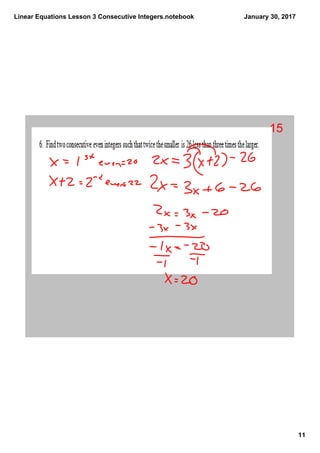 Linear Equations Lesson 3 Consecutive Integers.notebook
January 30, 2017
15
6. Find two consecutive even integers such that twice the smaller is 26 less than three times the larger.
x = 1st even=20
x+2 = 2nd even=22
2x = 3(x+2) - 26
2x = 3x + 6 - 26
2x = 3x - 20
-3x -3x
-1x = -20
-1 -1
x = 20
11